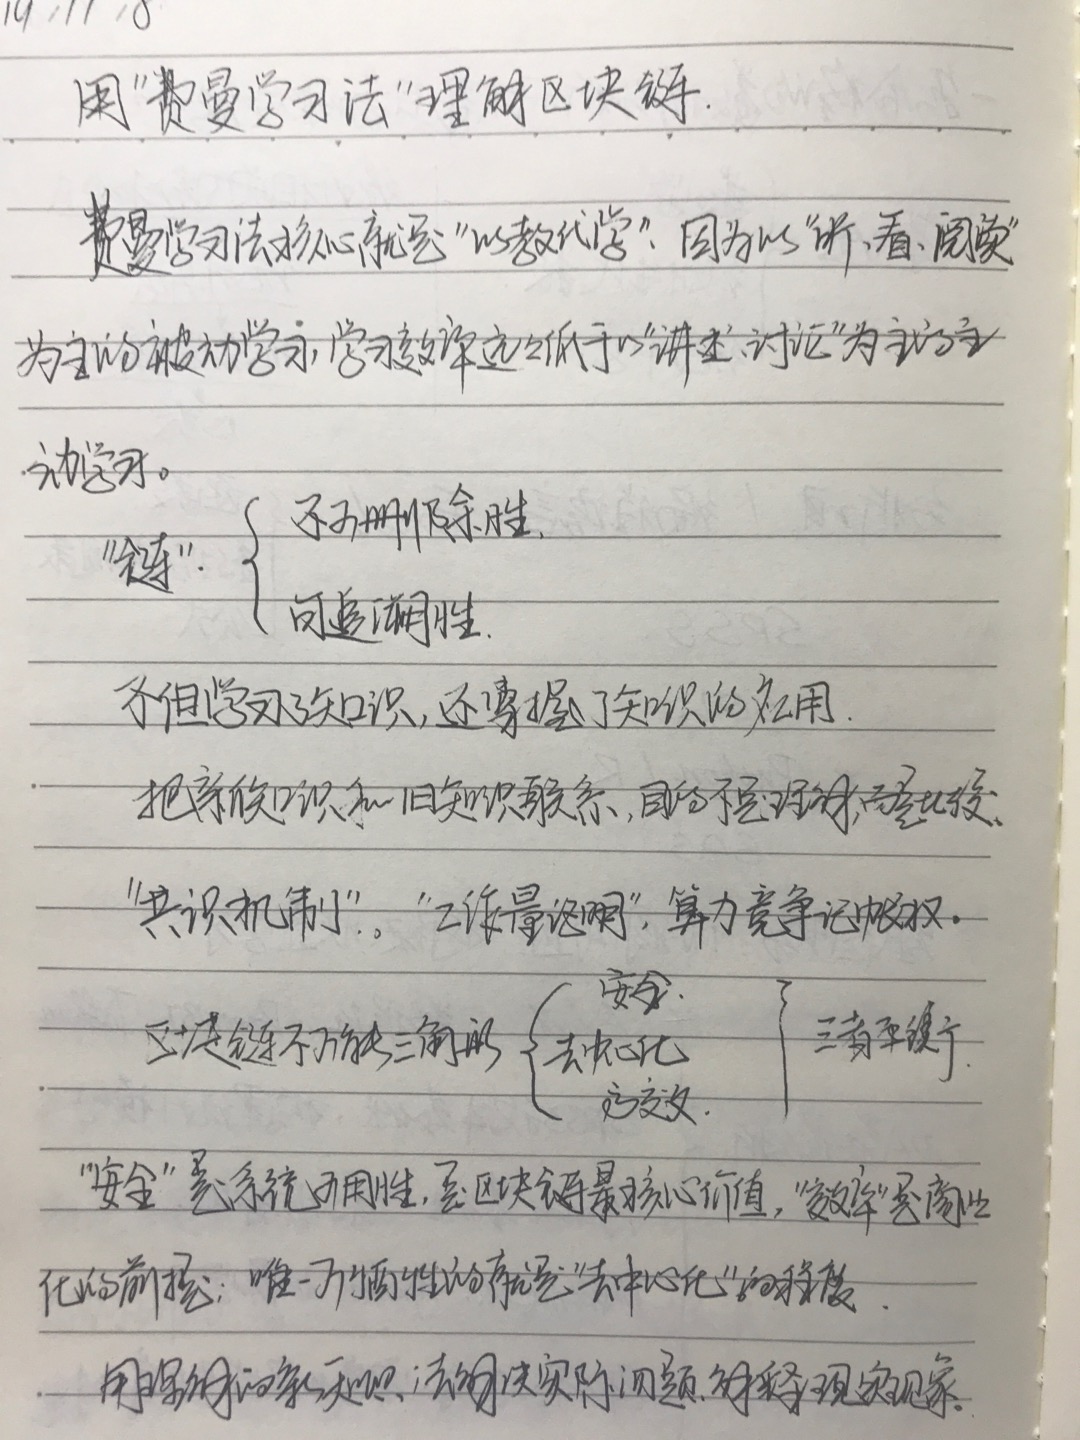 19.11.8
用“费曼学习法”理解区块链.
费曼学习法核心就是“以教代学”. 因为以“听、看、阅读”
为主的被动学习, 学习效率远远低于以“讲述、讨论”为主的主
动学习。
“链”.
不可删除性.
可追溯性.
不但学习了知识, 还掌握了知识的应用.
把新知识和旧知识联系, 目的不是理解, 而是比较.
“共识机制”. “工作量证明”, 算力竞争记帐权.
区块链不可能三角形
安全.
去中心化
高效.
三者平衡.
“安全”是系统可用性, 是区块链最核心价值, “效率”是商业
化的前提; 唯一可牺牲的就是“去中心化”的程度.
用理解的新知识, 去解决实际问题, 解释现实现象.